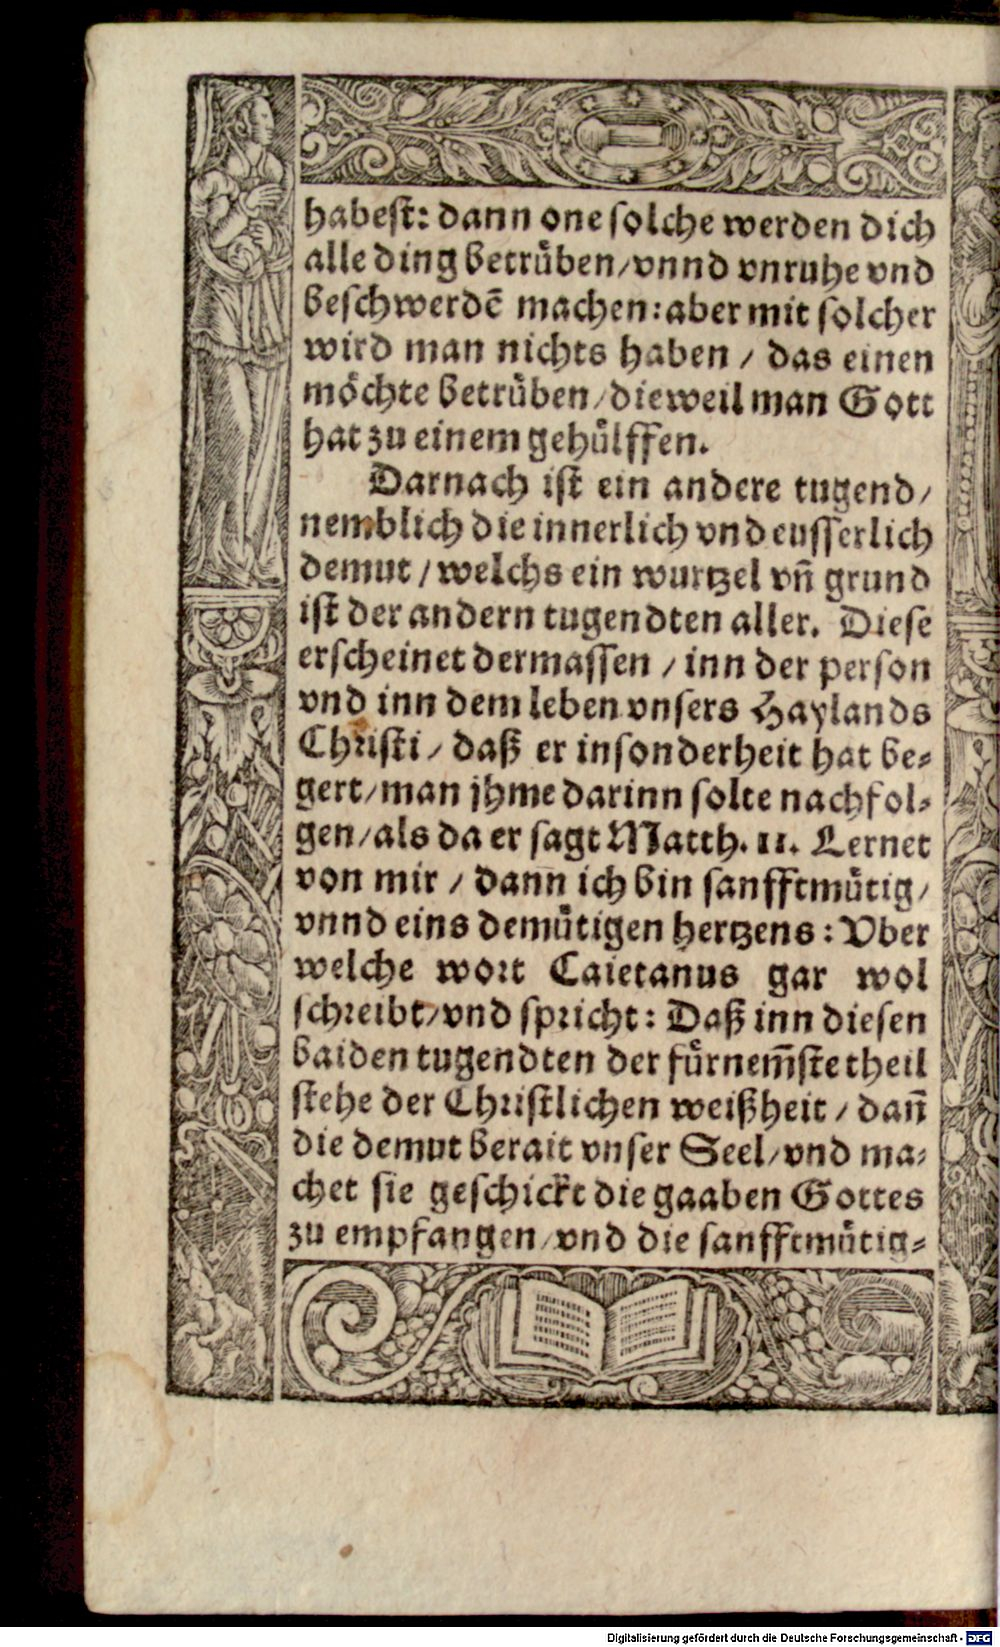 habest: dann one solche werden dich
alle ding betrůben/vnnd vnruhe vnd
beschwerdē machen: aber mit solcher
wird man nichts haben / das einen
mőchte betrůben/dieweil man Gott
hat zu einem gehůlffen.
Darnach ist ein andere tugend/
nemblich die innerlich vnd eusserlich
demut / welchs ein wurtzel vn̄ grund
ist der andern tugendten aller. Diese
erscheinet dermassen / inn der person
vnd inn dem leben vnsers Haylands
Christi/ daß er insonderheit hat be⸗
gert/man jhme darinn solte nachfol⸗
gen/als da er sagt Matth. 11. Lernet
von mir / dann ich bin sanfftmůtig/
vnnd eins demůtigen hertzens: Vber
welche wort Caietanus gar wol
schreibt/vnd spricht: Daß inn diesen
baiden tugendten der fůrnem̄ste theil
stehe der Christlichen weißheit / dan̄
die demut berait vnser Seel/vnd ma⸗
chet sie geschickt die gaaben Gottes
zu empfangen/vnd die sanfftmůtig⸗
Digitalisierung gefördert durch die Deutsche Forschungsgemeinschaft - DFG